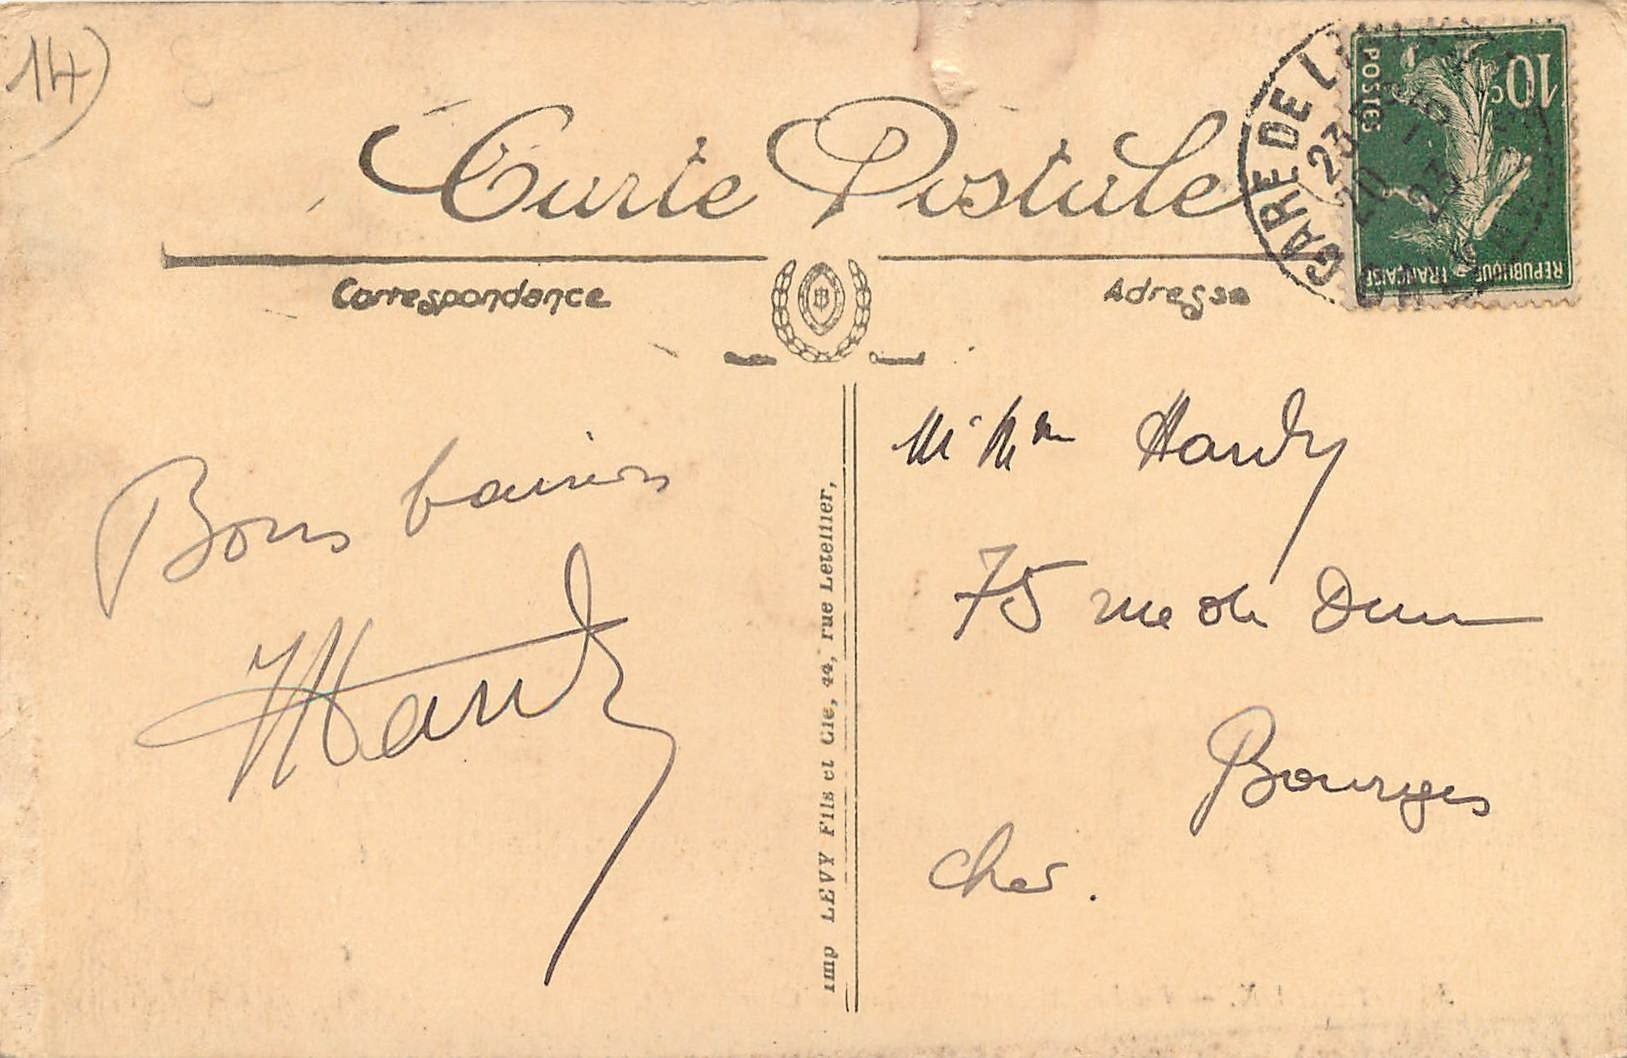 14)
Carte Postale
Correspondance
Adresse
GARE DE L
23
20 - 5
23
10c
POSTES
REPUBLIQUE FRANÇAISE
Bons baisers
Hardy
Imp LEVY Fils et Cie, 44, rue Letellier,
Mr Mme Hardy
75 rue de Dun
Bourges
Cher.